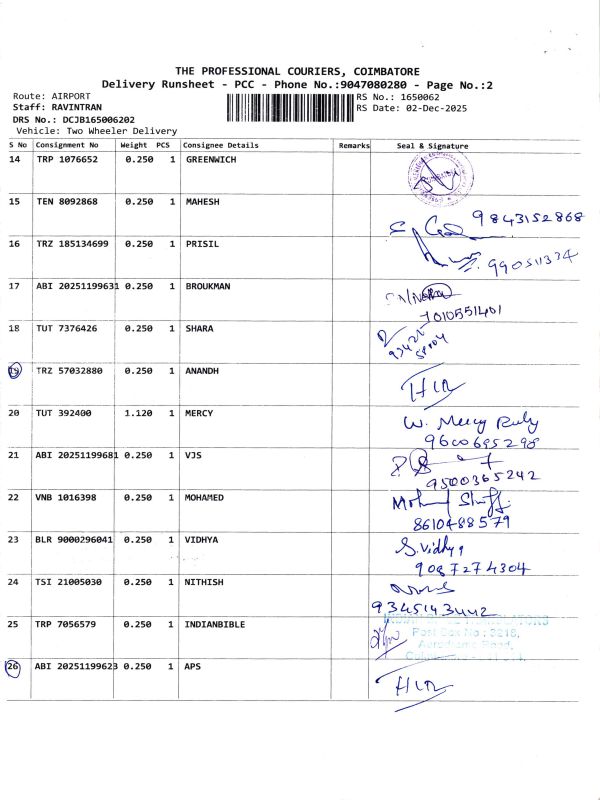 THE PROFESSIONAL COURIERS, COIMBATORE
Delivery Runsheet - PCC - Phone No.:9047080280 - Page No.:2
Route: AIRPORT
Staff: RAVINTRAN
DRS No.: DCJB165006202
Vehicle: Two Wheeler Delivery
RS No.: 1650062
RS Date: 02-Dec-2025
S No Consignment No Weight PCS Consignee Details Remarks Seal & Signature
14 TRP 1076652 0.250 1 GREENWICH
15 TEN 8092868 0.250 1 MAHESH 9843152868
16 TRZ 185134699 0.250 1 PRISIL
17 ABI 20251199631 0.250 1 BROUKMAN
7010551401
18 TUT 7376426 0.250 1 SHARA
19 TRZ 57032880 0.250 1 ANANDH
20 TUT 392400 1.120 1 MERCY W. Mercy Ruby
9600695298
21 ABI 20251199681 0.250 1 VJS
9500365242
22 VNB 1016398 0.250 1 MOHAMED
8610488579
23 BLR 9000296041 0.250 1 VIDHYA S.Vidhya
9087274304
24 TSI 21005030 0.250 1 NITHISH
9345143442
25 TRP 7056579 0.250 1 INDIANBIBLE
Post Box No : 3218,
Aerodrome Road,
26 ABI 20251199623 0.250 1 APS